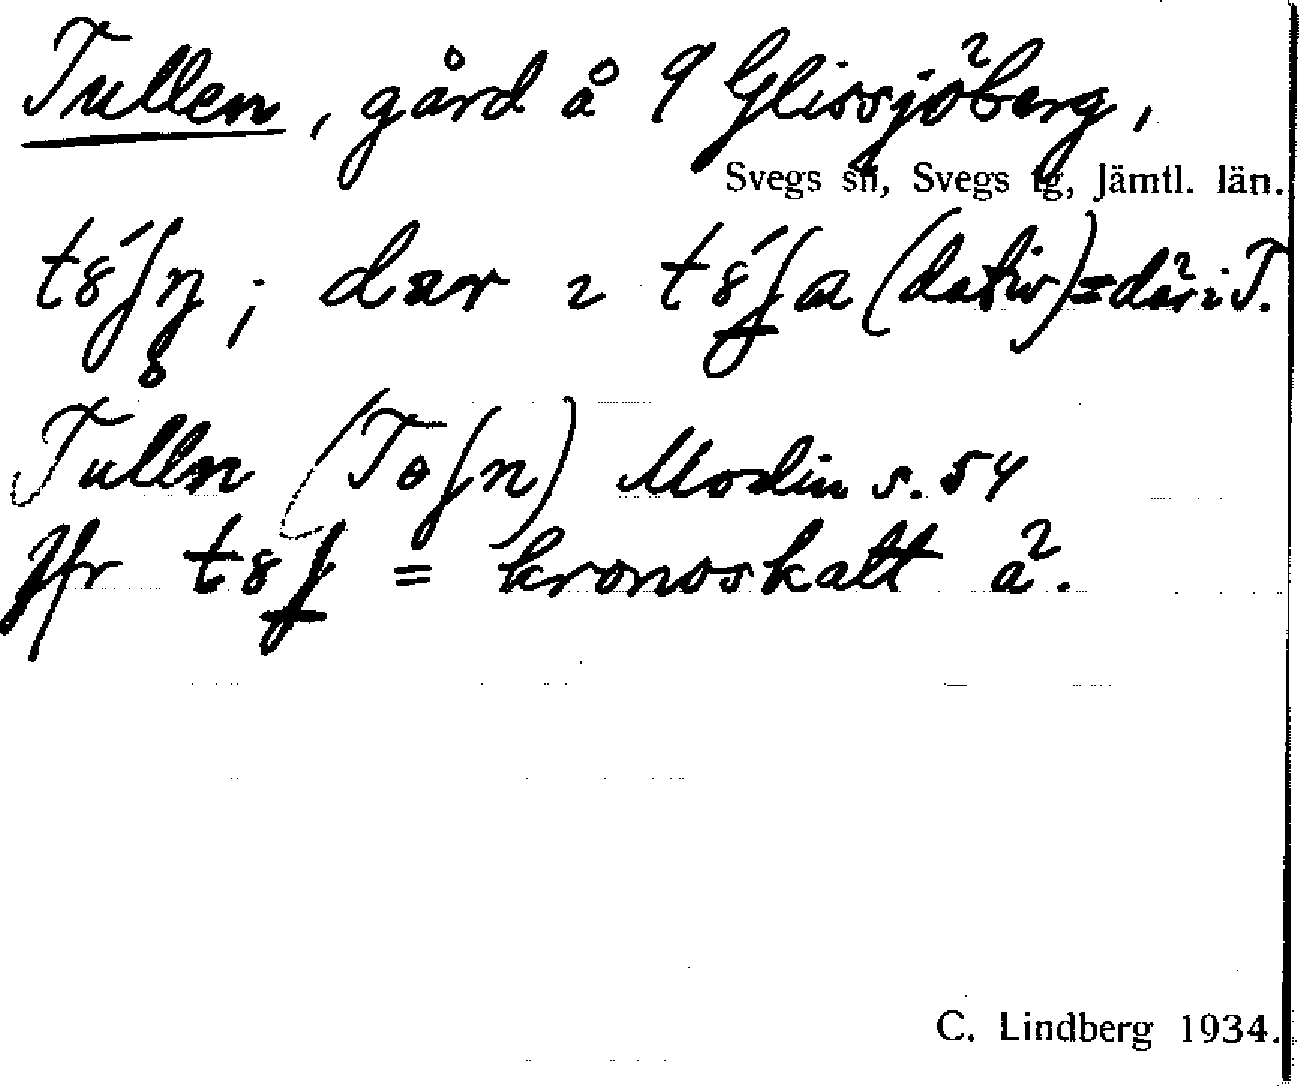 Tullen, gård å 9 Glissjöberg,
Svegs sn, Svegs tg, Jämtl. län.
; dær ı (dativ) = där i T.
Tulln (Toʃn) Modin s. 54
Jfr = kronoskatt å.
C. Lindberg 1934.